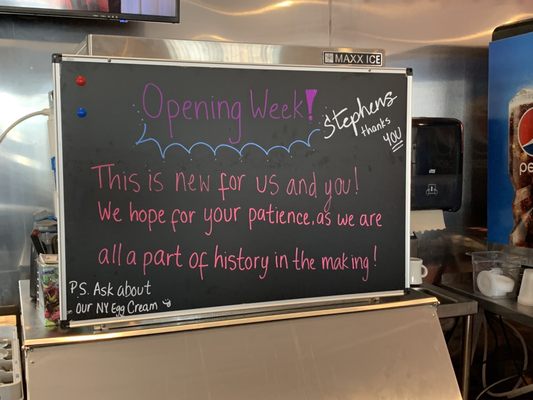 MAXX ICE
Opening Week!
Stephens
thanks
YOU
This is new for us and you!
We hope for your patience, as we are
all a part of history in the making!
P.S. Ask about
our NY Egg Cream
pepsi